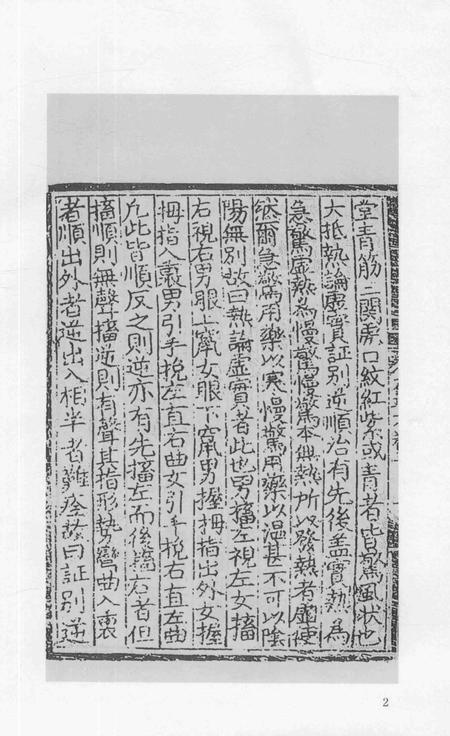 堂青筋三關虎口紋紅紫或青者皆驚風状也
大抵熱論虛實証別逆順治有先後盖實熱為
急驚虛熱為慢驚慢驚本無熱所以發熱者虛使
然爾急驚用藥以寒慢驚用藥以温甚不可以陰
陽無別故曰熱論虛實者此也男搐左視左女搐
右視右男眼上竄女眼下竄男握拇指出外女握
拇指入裏男引手挽左直右曲女引手挽右直左曲
凢此皆順反之則逆亦有先搐左而後雙右者但
搐順則無聲搐逆則有聲其指形勢彎曲入裏
者順出外者逆出入相半者難痊故曰証別逆
2